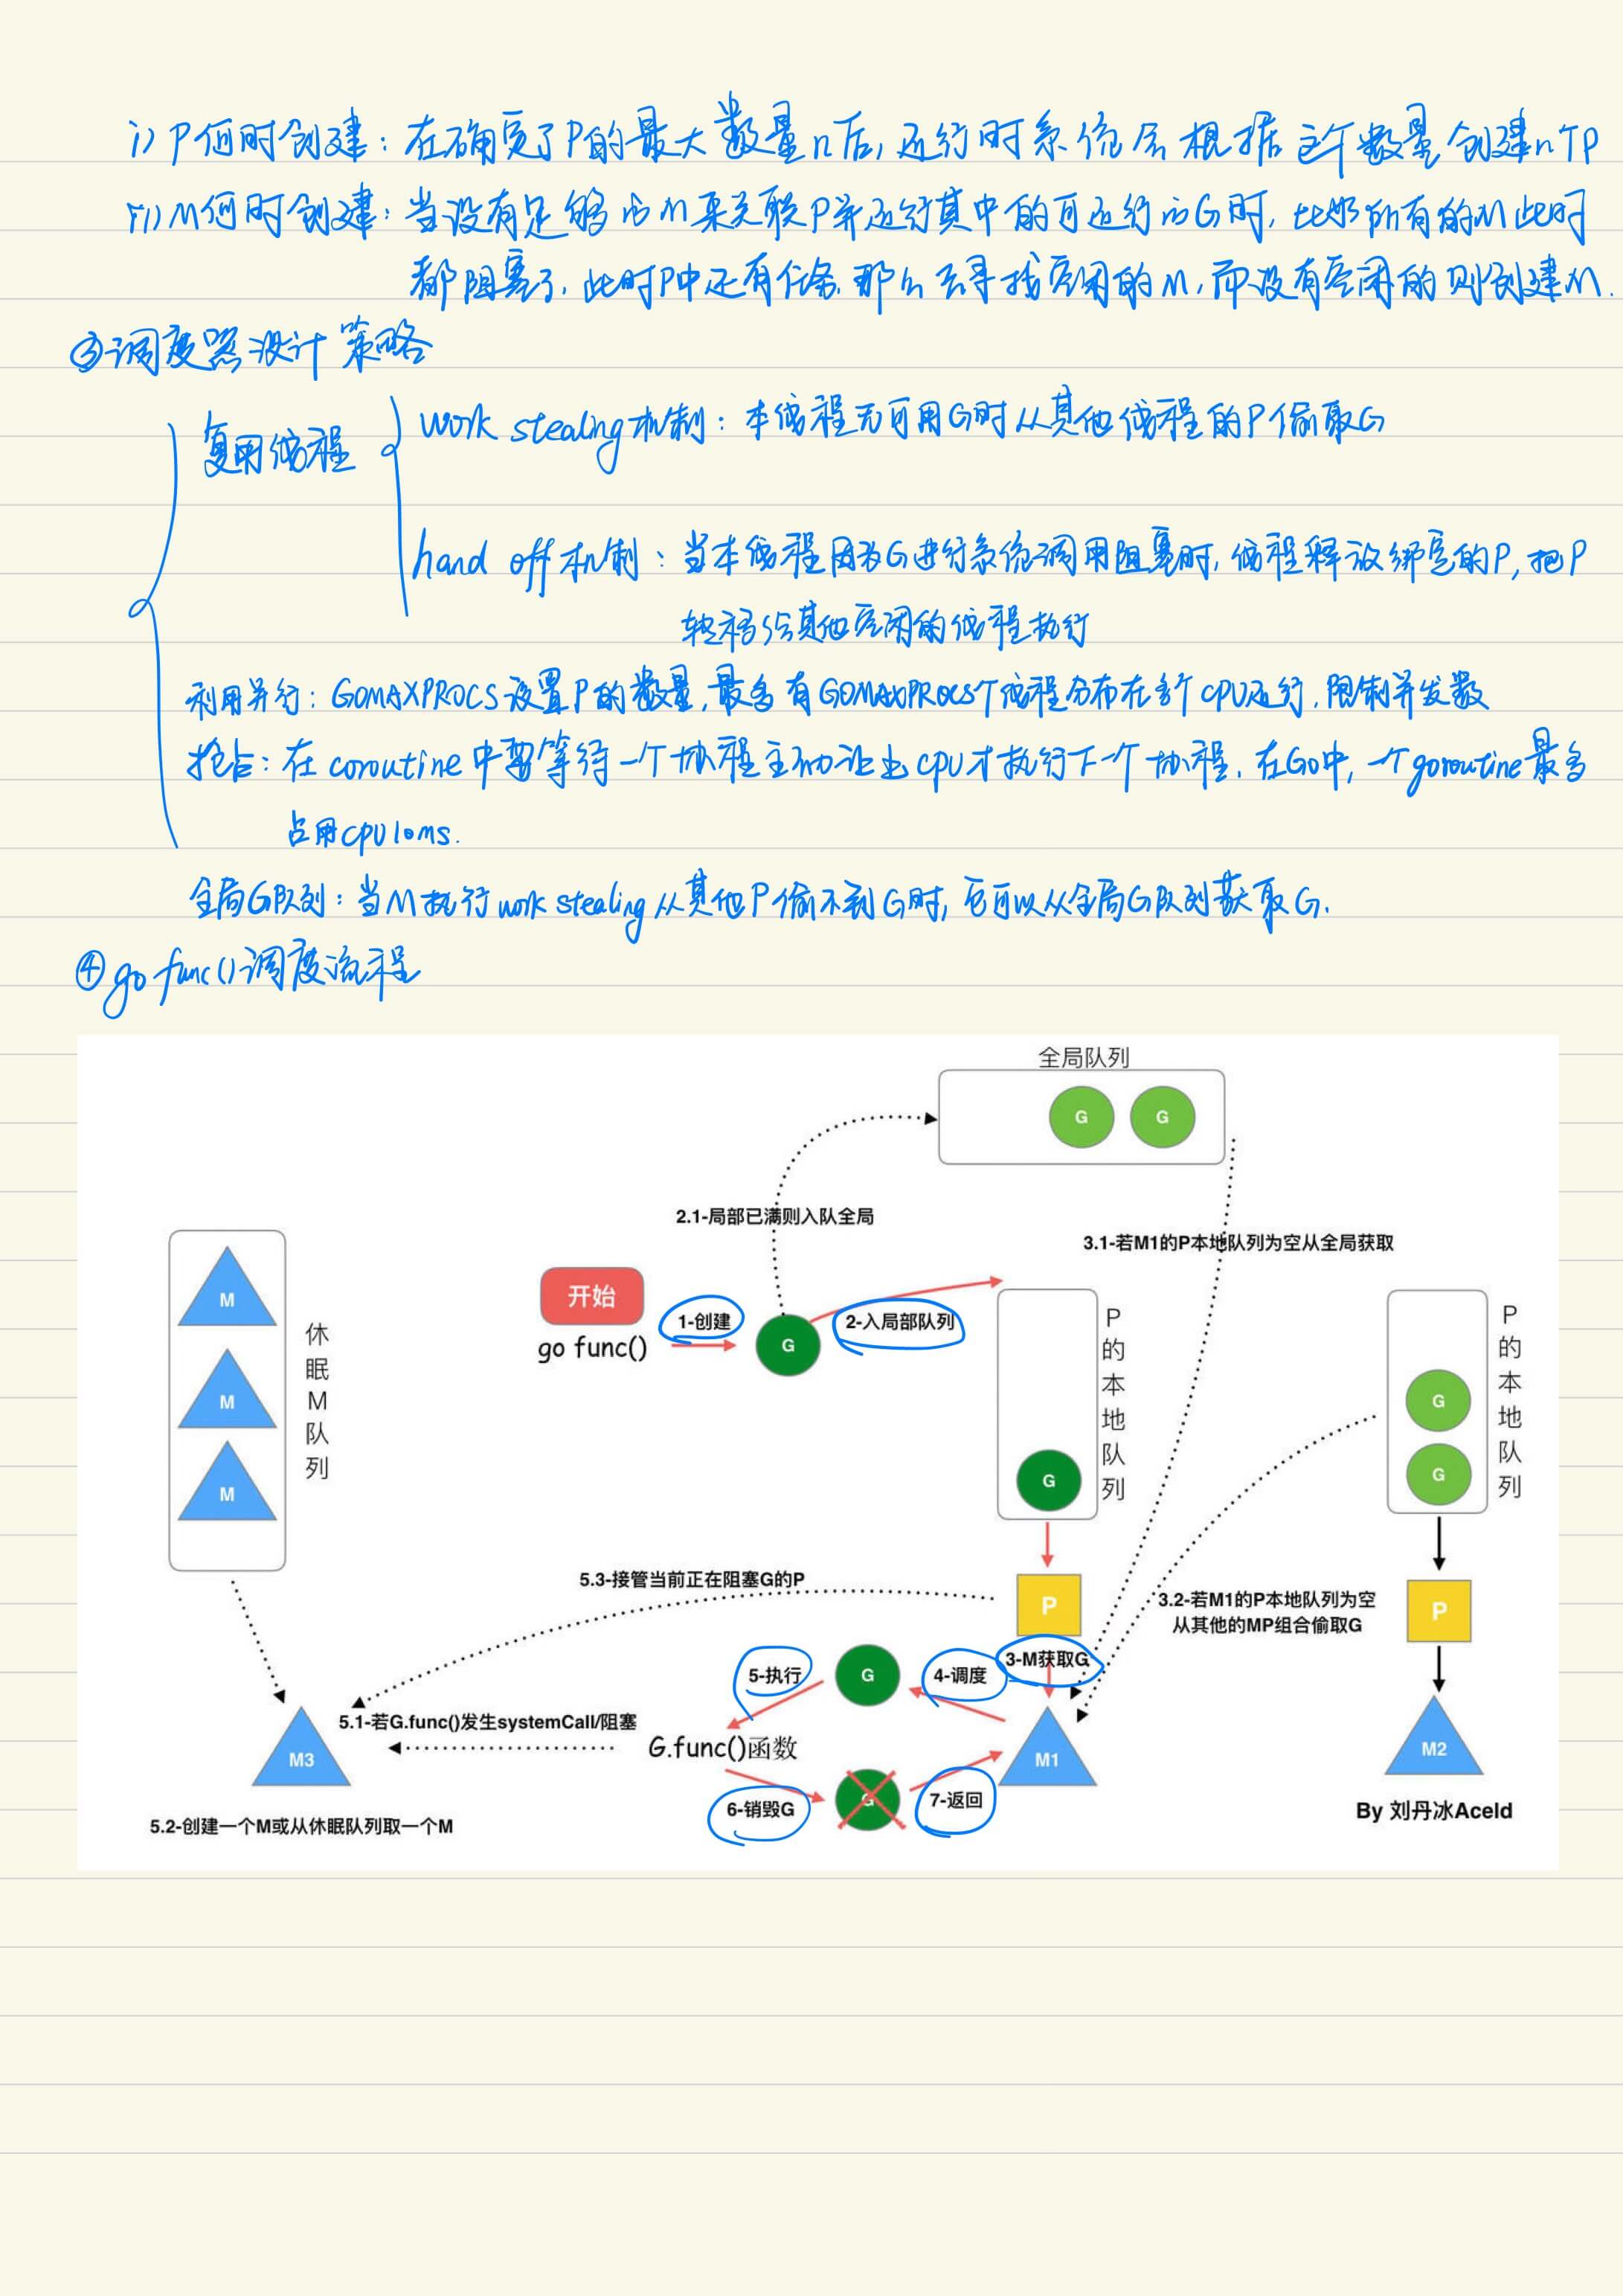 i) P何时创建：在确定了P的最大数量n后，运行时系统会根据这个数量创建n个P
ii) M何时创建：当没有足够的M来关联P并运行其中的可运行的G时，比如所有的M此时
都阻塞了，此时P中还有任务，那么去寻找空闲的M，而没有空闲的则创建M.
③调度器设计策略
复用线程
work stealing机制：本线程无可用G时从其他线程的P偷取G
hand off机制：当本线程因为G进行系统调用阻塞时，线程释放绑定的P，把P
转移给其他空闲的线程执行
利用并行：GOMAXPROCS设置P的数量，最多有GOMAXPROCS个线程分布在多个CPU运行，限制并发数
抢占：在coroutine中要等待一个协程主动让出CPU才执行下一个协程，在Go中，一个goroutine最多
占用CPU 10ms.
全局G队列：当M执行work stealing从其他P偷不到G时，它可以从全局G队列获取G.
④go func()调度流程
全局队列
G G
2.1-局部已满则入队全局
3.1-若M1的P本地队列为空从全局获取
开始
go func()
1-创建
G
2-入局部队列
P的本地队列
G
P的本地队列
G
G
M
M
M
休眠M队列
5.3-接管当前正在阻塞G的P
P
3.2-若M1的P本地队列为空
从其他的MP组合偷取G
P
3-M获取G
4-调度
G
5-执行
5.1-若G.func()发生systemCall/阻塞
G.func()函数
M3
M1
M2
6-销毁G
G
7-返回
5.2-创建一个M或从休眠队列取一个M
By 刘丹冰Aceld